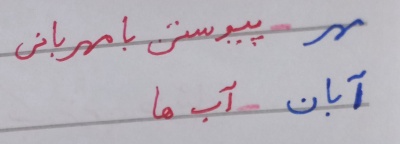 مهر - پیوستن با مهربانی
آبان - آب ها